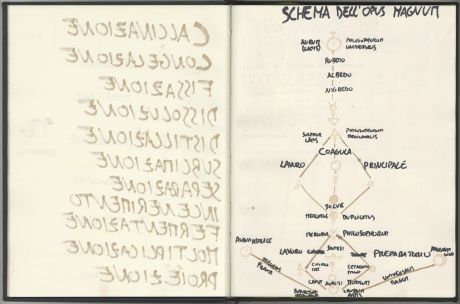 CALCINAZIONE
CONGELAZIONE
FISSAZIONE
DISSOLUZIONE
DISTILLAZIONE
SUBLIMAZIONE
SEPARAZIONE
INCENERIMENTO
FERMENTAZIONE
MOLTIPLICAZIONE
PROIEZIONE
SCHEMA DELL'OPUS MAGNUM
AURUM (LAPIS) PHILOSOPHORUM UNIVERSALIS
RUBEDO
ALBEDO
NIGREDO
SULPHUR LAPIS PHILOSOPHORUM
COAGULA
LAVORO PRINCIPALE
SOLVE
MERCURIUS DUPLICATUS
MERCURIUS PHILOSOPHORUM
LAVORO PREPARATORIO
SINTESI
CAPUT ANALISI MORTUUM